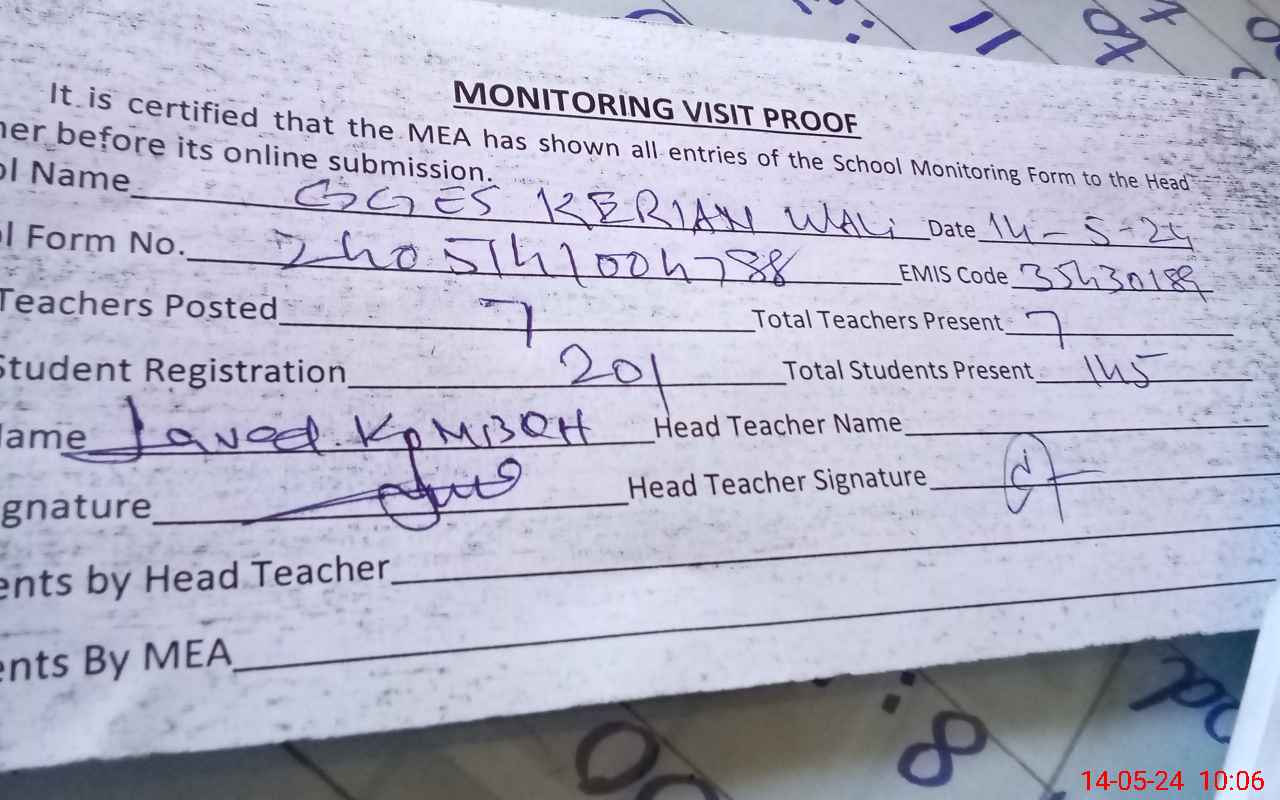 MONITORING VISIT PROOF
It is certified that the MEA has shown all entries of the School Monitoring Form to the Head
her before its online submission.
ol Name GGES KERIAN WALI Date 14-5-24
l Form No. 2405141004788 EMIS Code 35430189
Teachers Posted 7 Total Teachers Present 7
Student Registration 201 Total Students Present 145
Name Javed KAMBOH Head Teacher Name
gnature Head Teacher Signature
ents by Head Teacher
ents By MEA
8
14-05-24 10:06